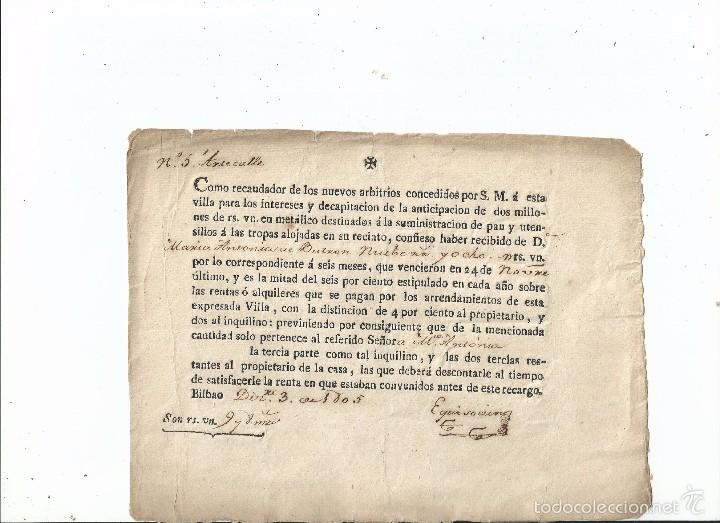 N.º 5 Artecalle
✠
Como recaudador de los nuevos arbitrios concedidos por S. M. á esta
villa para los intereses y decapitacion de la anticipacion de dos millo-
nes de rs. vn. en metálico destinados á la suministracion de pan y uten-
silios á las tropas alojadas en su recinto, confieso haber recibido de D.
Maria Antonia de Butron Nueve y ocho rs. vn.
por lo correspondiente á seis meses, que vencieron en 24 de Novre
último, y es la mitad del seis por ciento estipulado en cada año sobre
las rentas ó alquileres que se pagan por los arrendamientos de esta
expresada Villa, con la distincion de 4 por ciento al propietario, y
dos al inquilino: previniendo por consiguiente que de la mencionada
cantidad solo pertenece al referido Señora Mª Antonia
la tercia parte como tal inquilino, y las dos tercias res-
tantes al propietario de la casa, las que deberá descontarle al tiempo
de satisfacerle la renta en que estaban convenidos antes de este recargo.
Bilbao Dizre 3. de 1805
Son rs. vn. 9 y 8 ms
todocoleccion.net